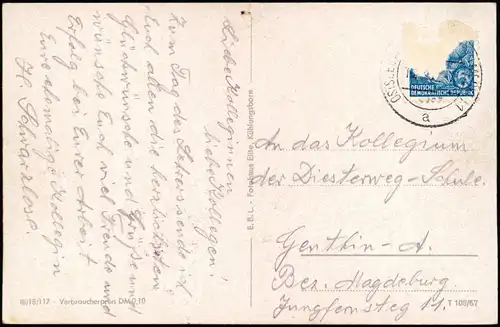 Liebe Kolleginnen,
liebe Kollegen!
Zum Tag des Lehrers sende ich
Euch allen die herzlichsten
Glückwünsche und Grüße und
wünsche Euch viel Freude und
Erfolg bei Eurer Arbeit
Eure ehemalige Kollegin
H. Schwarzlose.
III/18/117 - Verbraucherpreis DM 0,10
E.B.L. - Fotohaus Eltke, Kühlungsborn
DEUTSCHE
DEMOKRATISCHE REPUBLIK
a
An das Kollegium
der Diesterweg-Schule.
Genthin-A.
Bez. Magdeburg
Jungfernsteg 11.
T 108/57